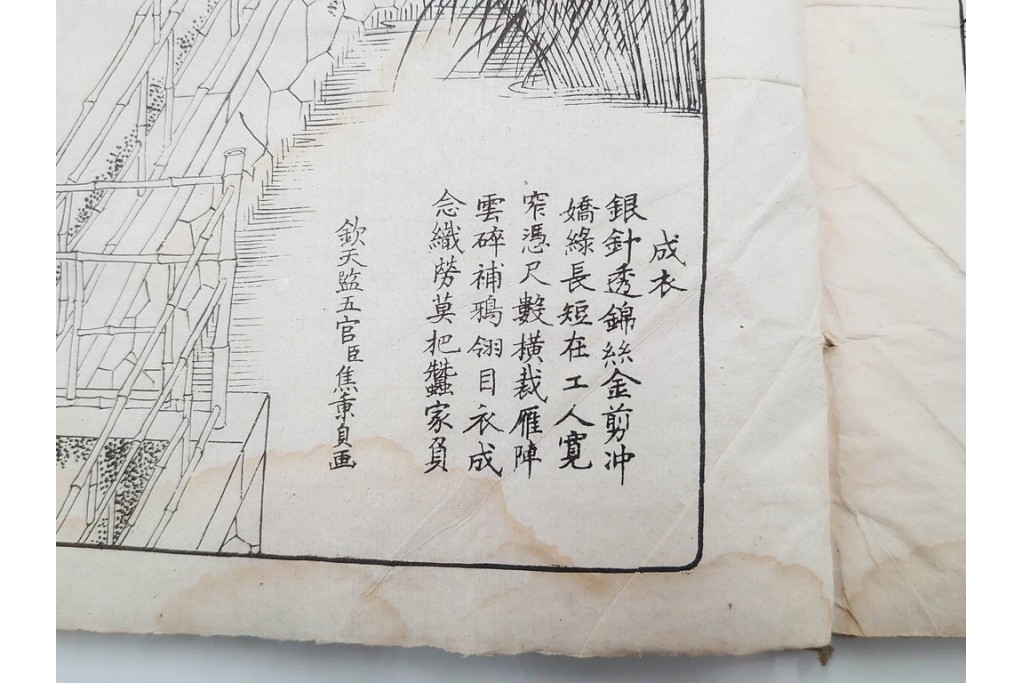 成衣
銀針透錦絲金剪冲
嬌綠長短在工人寬
窄憑尺數橫裁雁陣
雲碎補鴉翎目衣成
念織勞莫把蠶家負
欽天監五官臣焦秉貞画